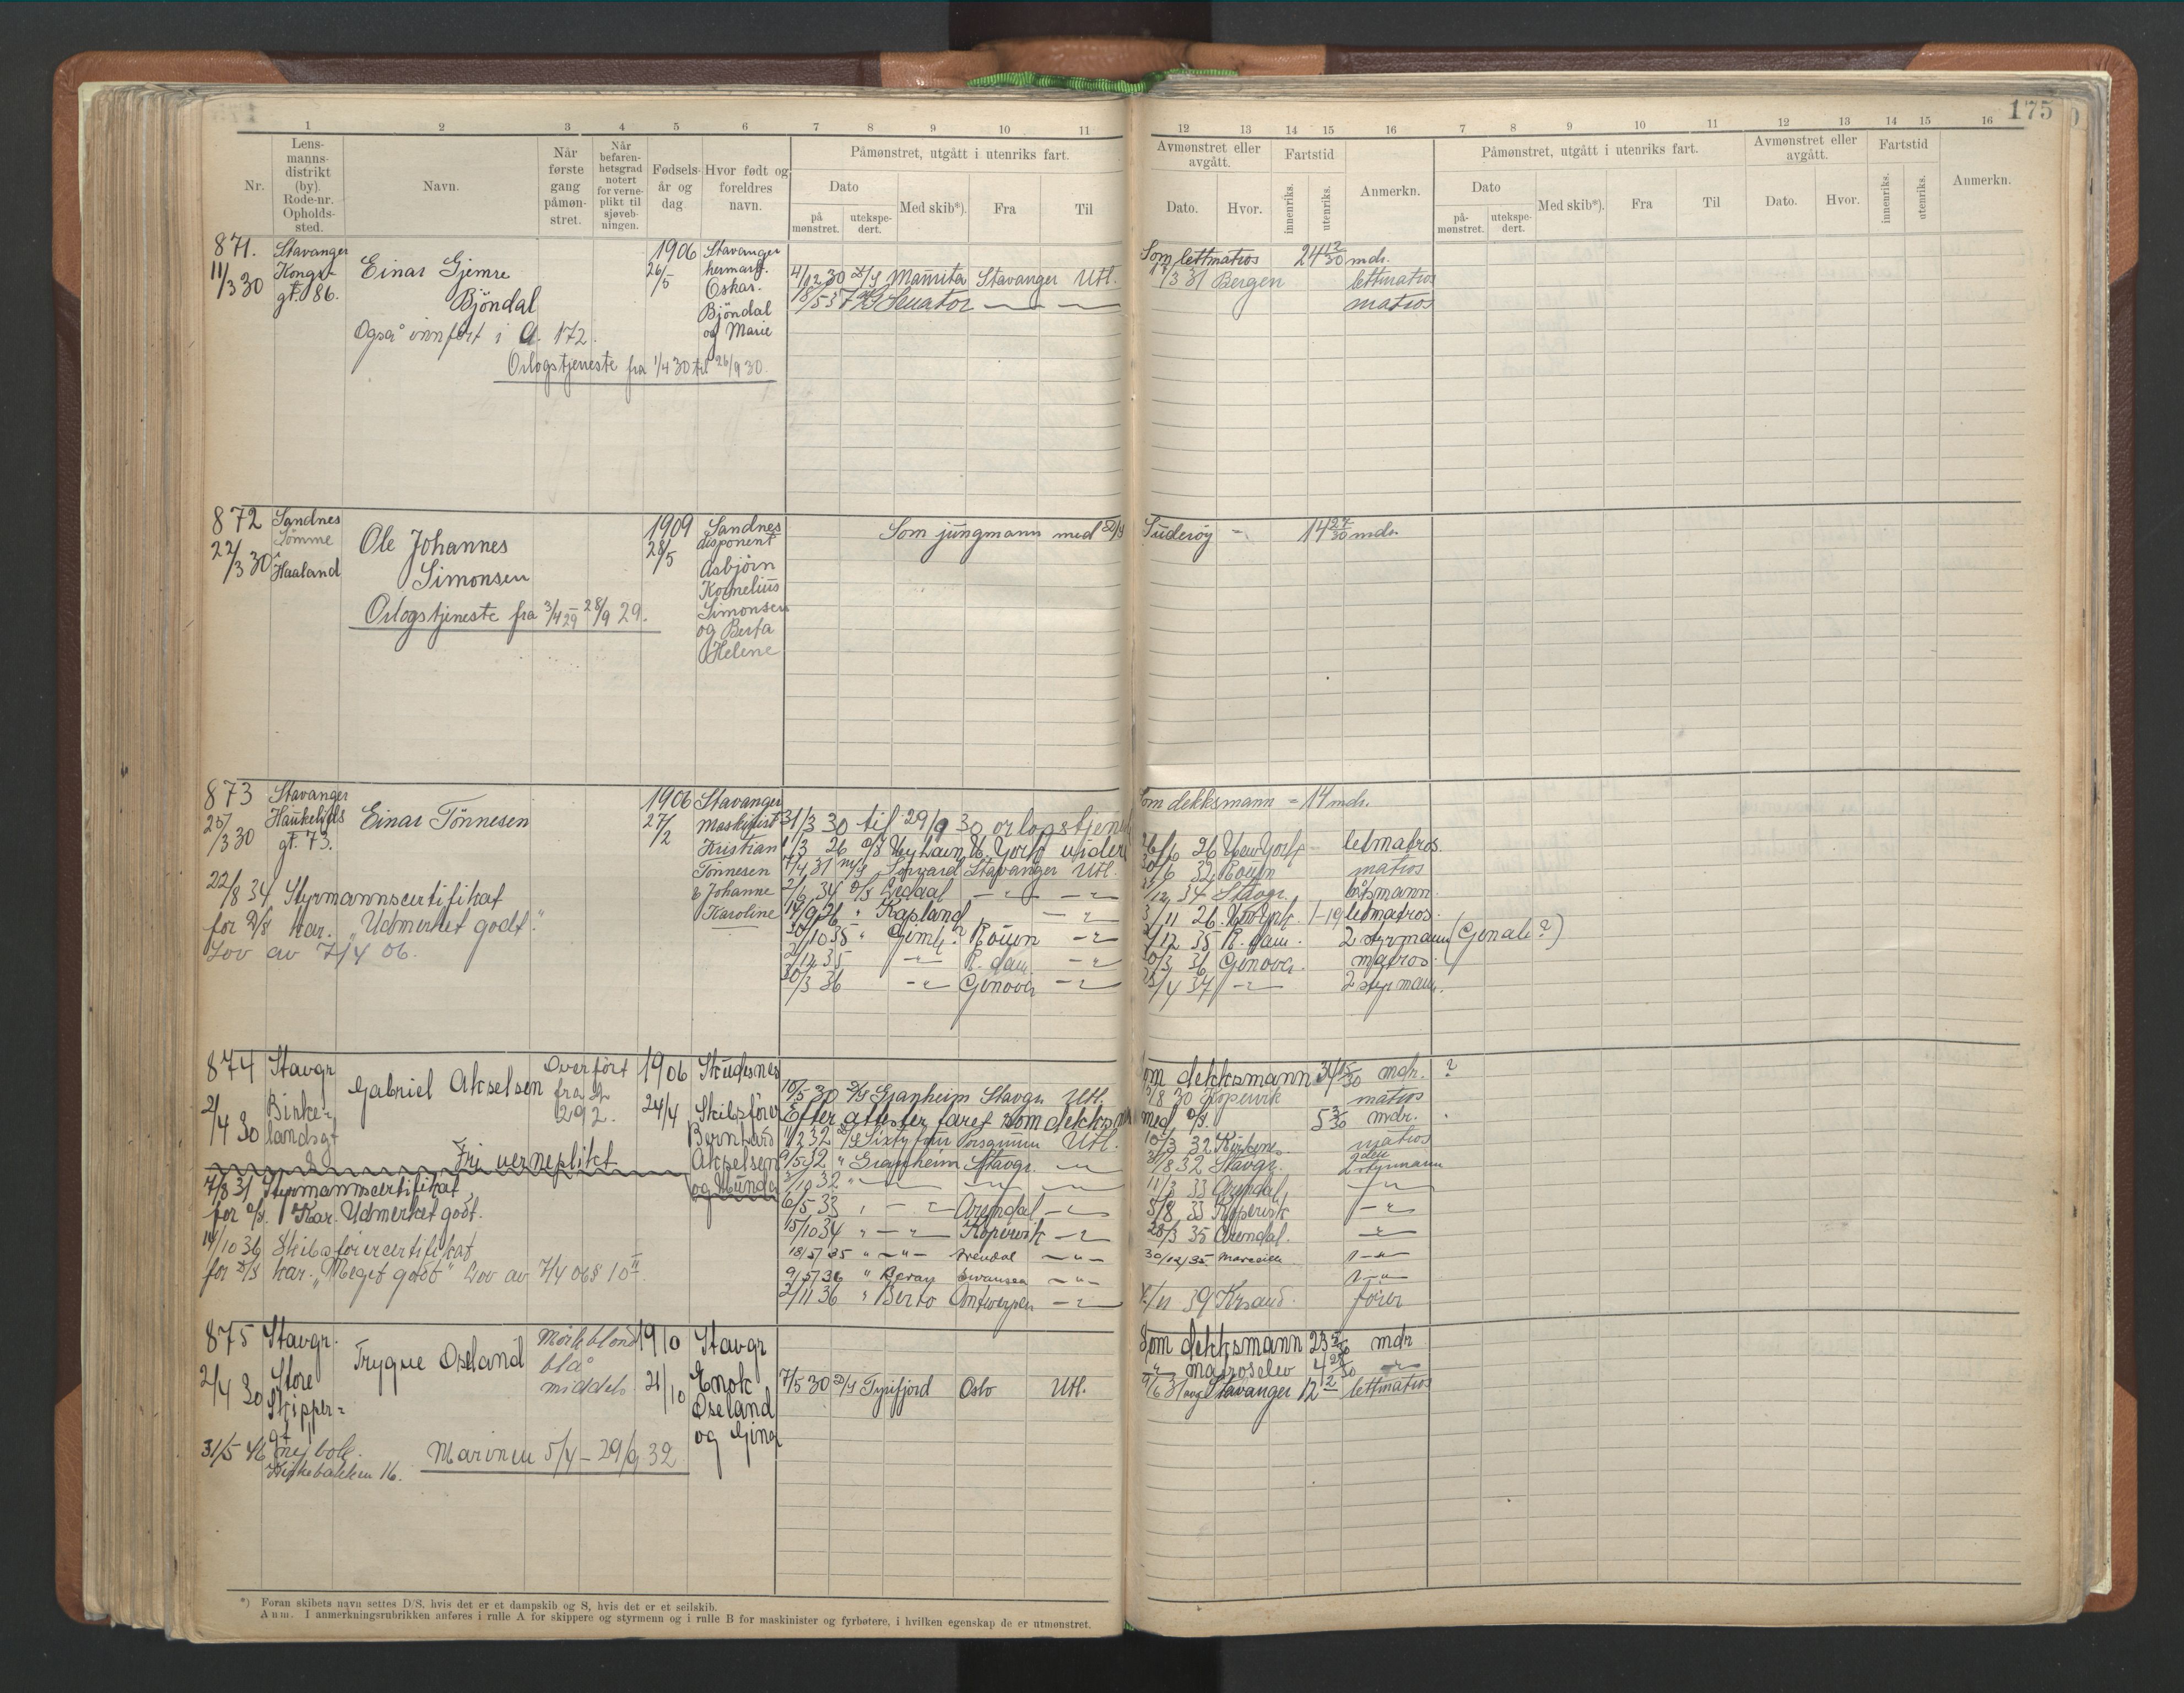 175
1 2 3 4 5 6 7 8 9 10 11
Nr.
Lens-
manns-
distrikt
(by).
Rode-nr.
Opholds-
sted.
Navn.
Når
første
gang
påmøn-
stret.
Når
befaren-
hetsgrad
notert
for verne-
plikt til
sjøveb-
ningen.
Fødsels-
år og
dag
Hvor født og
foreldres
navn.
Påmønstret, utgått i utenriks fart.
Dato
på
mønstret.
utekspe-
dert.
Med skib*).
Fra
Til
12 13 14 15 16 7 8 9 10 11 12 13 14 15 16
Avmønstret eller
avgått.
Dato.
Hvor.
Fartstid
innenriks.
utenriks.
Anmerkn.
Påmønstret, utgått i utenriks fart.
Dato
på-
mønstret.
utekspe-
dert.
Med skib*).
Fra
Til
Avmønstret eller
avgått.
Dato.
Hvor.
Fartstid
innenriks.
utenriks.
Anmerkn.
871.
11/3 30
Stavanger
Kongs-
gt. 86.
Einar Gjemre
Bjöndal
Også innført i A. 172.
Orlogstjeneste fra 1/4 30 til 26/9 30.
1906
26/5
Stavanger
hermasj.
Oskar.
Bjöndal
og Marie
4/12 30 D/S Manrita Stavanger Utl.
18/5 37 Senator — —
Som lettmatros 24 12/30 mdr.
17/3 31 Bergen lettmatros
matros
872
22/3 30
Sandnes
Sömme
Haaland
Ole Johannes
Simonsen
Orlogstjeneste fra 3/4 29 – 28/9 29.
1909
28/5
Sandnes
disponent
Asbjörn
Kornelius
Simonsen
og Berta
Helene
Som jungmann med D/S
Suderöy – 14 27/30 mdr.
873
25/3 30
Stavanger
Haukelids
gt. 73.
Einar Tönnesen
22/8 34 Styrmannscertifikat
for D/S kar. „Udmerket godt".
Lov av 7/4 06.
1906
27/2
Stavanger
Maskinist
Kristian
Tönnesen
& Johanne
Karoline
31/3 30 til 29/9 30 orlogstjen
Stavanger Utl.
Kapland
30/10 35 " Gimle? Rouen –"–
2/12 35 –"– R.dam –"–
30/3 36 –"– Genova –"–
Som dekksmann = 14 mdr.
26/6 26 New York – letmatros.
30/6 32 Rouen matros
34 Stavgr. båtsmann.
3/11 26 New York. 1-19 letmatros.
2/12 35 R.dam. 2 styrmann (Genale?)
30/3 36 Genova. matros.
/4 37 –"– 2 styrmann.
874
2/4 30
Stavgr
Birke-
landsgt
Gabriel Akselsen
Overfört
fra A
292.
Fri verneplikt
7/8 31 Styrmannscertifikat
for D/S. Kar. Udmerket godt.
14/10 36 Skibsförercertifikat
for D/S kar. „Meget godt" Lov av 7/4 06 § 10 II.
1906
24/4
Skudesnes
Skibsförer
Bernhard
Akselsen
og Hunda
10/5 30 D/S Granheim Stavgr Utl.
Efter attester faret som dekksm
11/2 32 D/S Sixty four Porsgrunn Utl.
9/5 32 " Granheim Stavgr. –"–
3/10 32 " –"– –"– –"–
6/5 33 " –"– Arendal –"–
15/10 34 " –"– Kopervik –"–
18/5 35 " –"– Arendal –"–
9/5 36 " Bpray Swansea –"–
2/11 36 " Berto Antwerpen –"–
Som dekksmann 34 15/30 mdr. ?
/8 30 Kopervik matros
med D/S. 5 3/30 mdr.
10/3 32 Kirkenes matros
31/8 32 Stavgr. 2den styrmann
11/3 33 Arendal –"–
5/8 33 Kopervik –"–
28/3 35 Arendal. –"–
30/12/35 Marseille –"–
–"–
/11 39 Krsand. förer
875
2/4 30
Stavgr.
Store
Skipper-
gt 11
Trygve Oseland
Mörkblond
blå
middels
31/5 46 nej bolk.
Kirkebakken 16.
Marinen 5/4 – 29/9 32
1910
21/10
Stavgr
Enok
Oseland
og Gina
7/5 30 D/S Tyrifjord Oslo Utl.
Som dekksmann 23 mdr
" matroselev 4 28/30 –"–
9/6 31 avg Stavanger 12 lettmatros
*) Foran skibets navn settes D/S, hvis det er et dampskib og S, hvis det er et seilskib.
Anm. I anmerkningsrubrikken anføres i rulle A for skippere og styrmenn og i rulle B for maskinister og fyrbøtere, i hvilken egenskap de er utmønstret.